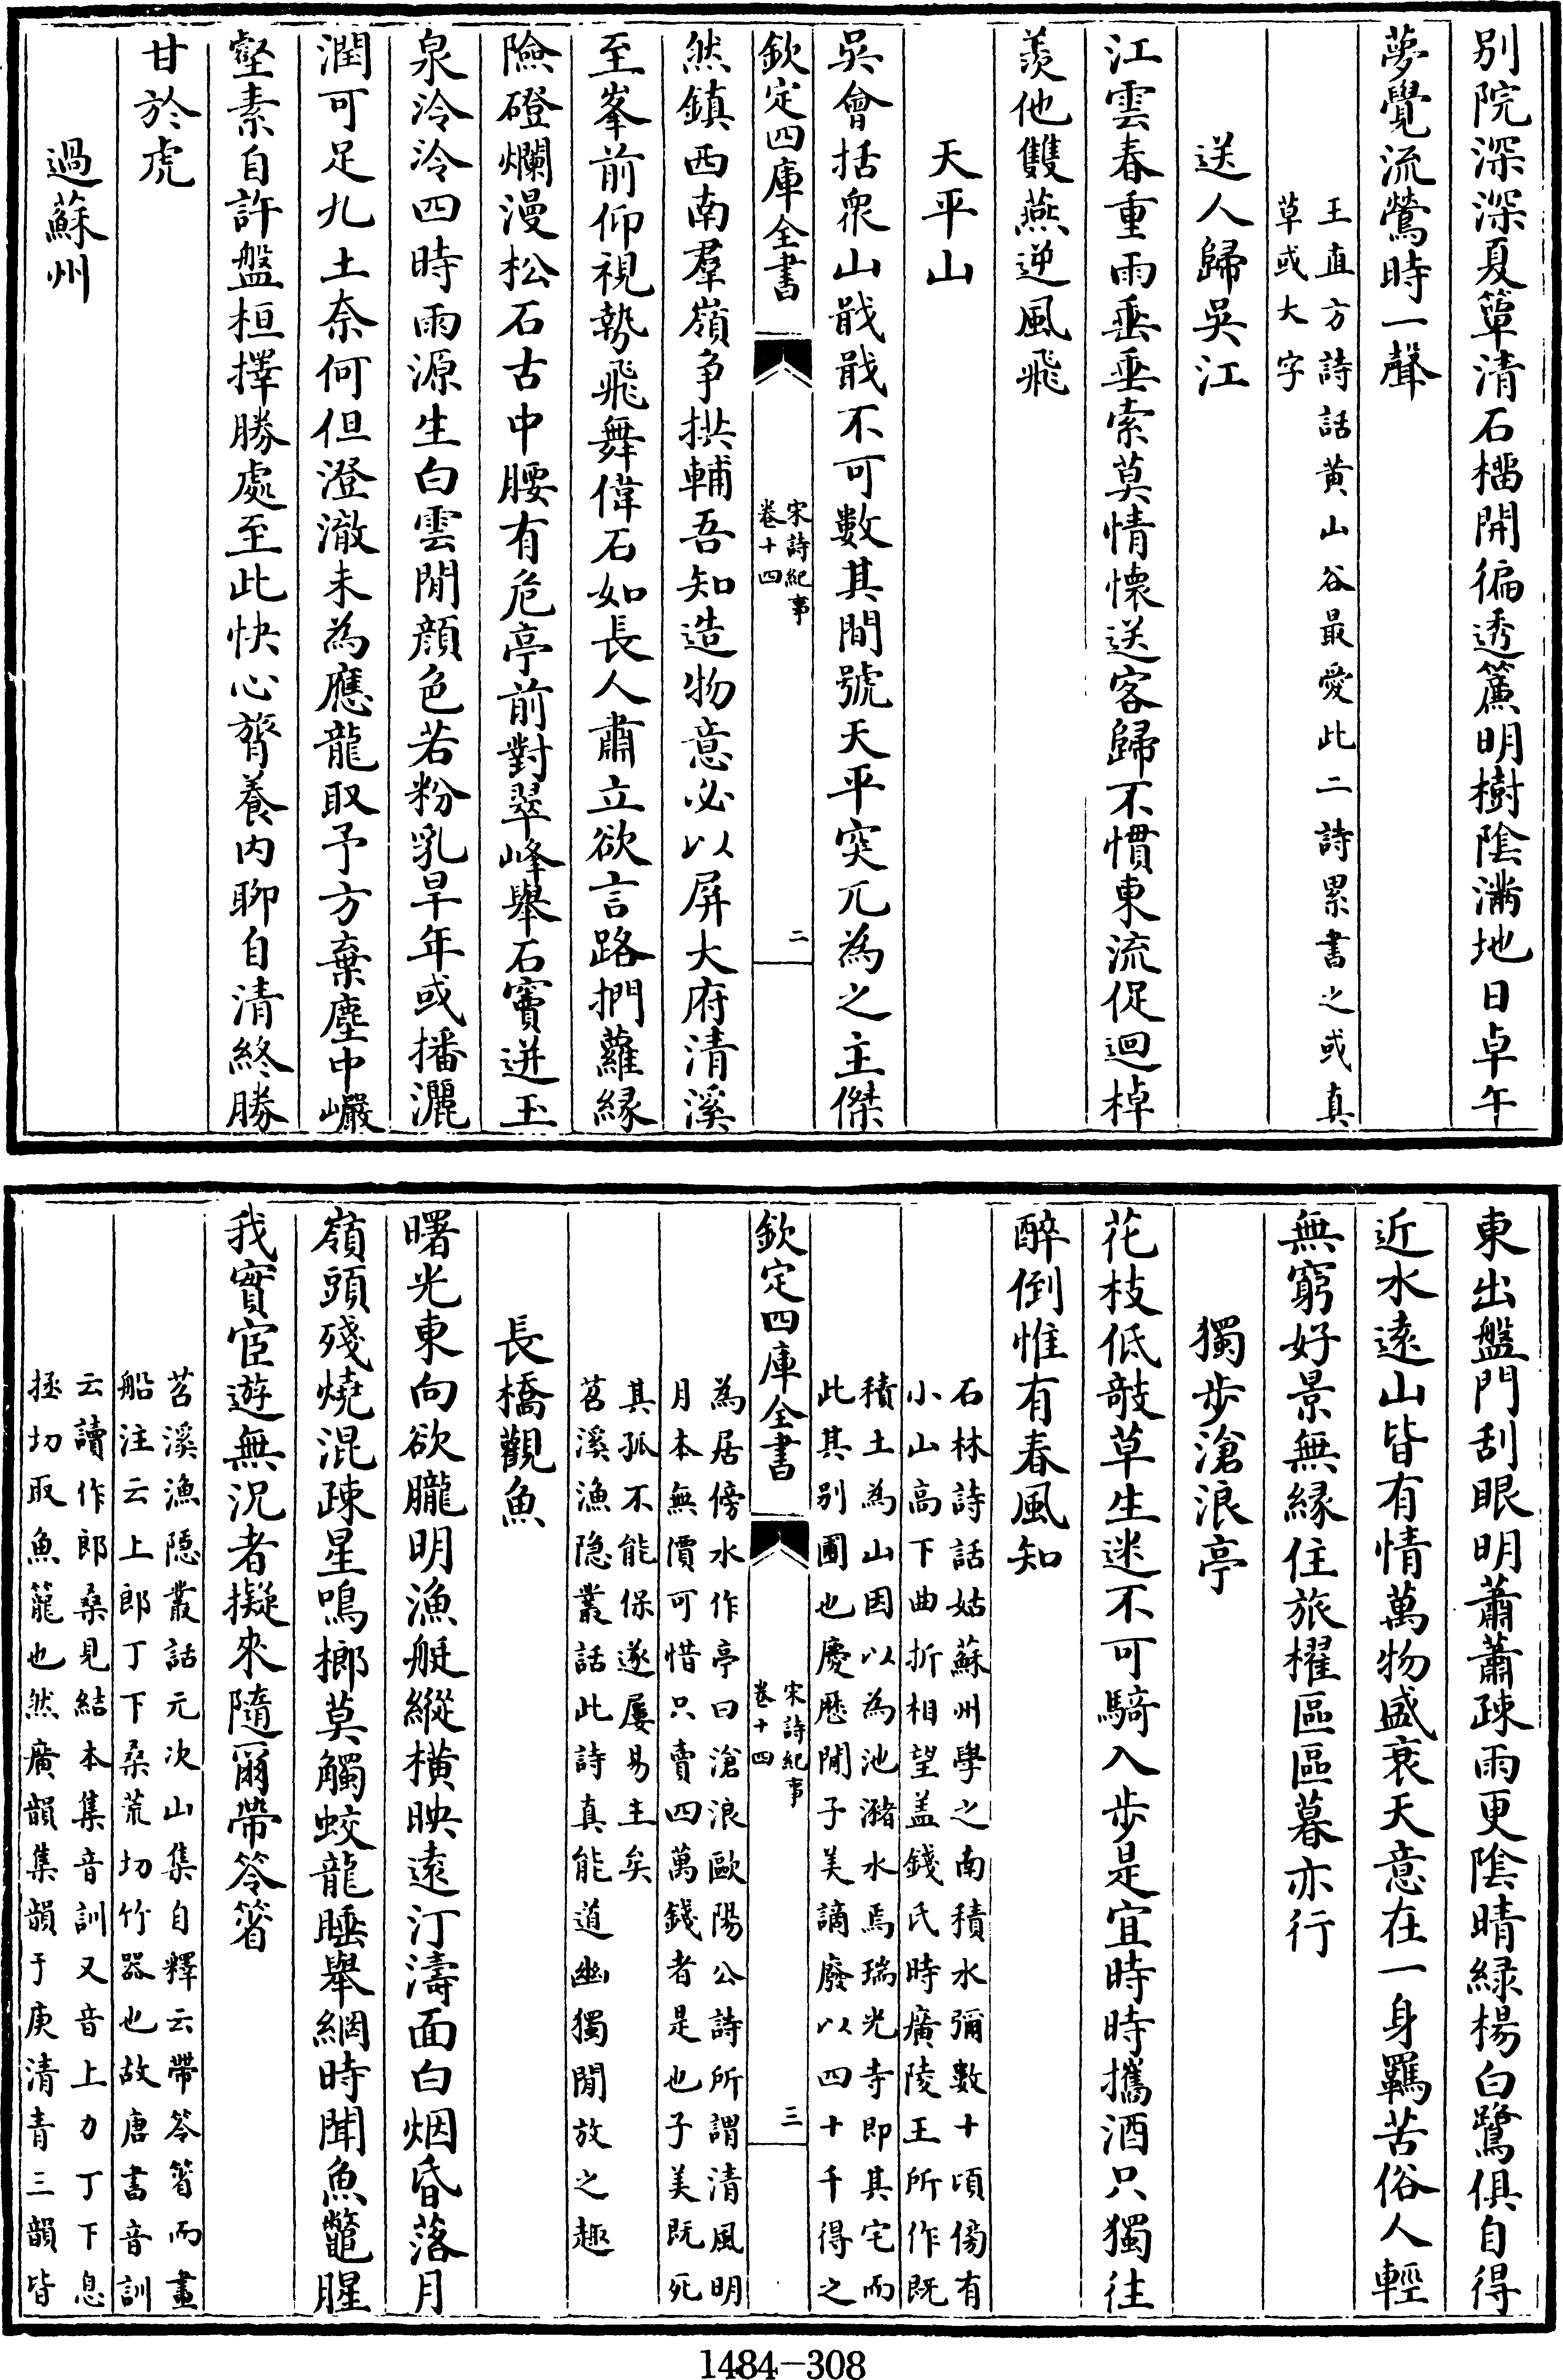 别院深深夏簟清石榴開徧透簾明樹陰滿地日卓午
夢覺流鶯時一聲
王直方詩話黄山谷最愛此二詩累書之或真
草或大字
送人歸吳江
江雲春重雨垂垂索莫情懷送客歸不慣東流促迴棹
羨他雙燕逆風飛
天平山
吳會括衆山戢戢不可數其間號天平突兀為之主傑
欽定四庫全書
宋詩紀事
卷十四
二
然鎮西南羣嶺争拱輔吾知造物意必以屏大府清溪
至峯前仰視勢飛舞偉石如長人肅立欲言路捫蘿緣
險磴爛漫松石古中腰有危亭前對翠峰舉石竇迸玉
泉泠泠四時雨源生白雲閒顔色若粉乳旱年或播灑
潤可足九土奈何但澄澈未為應龍取予方棄塵中巖
壑素自許盤桓擇勝處至此快心膂養内聊自清終勝
甘於虎
過蘇州
東出盤門刮眼明蕭蕭疎雨更陰晴緑楊白鷺俱自得
近水遠山皆有情萬物盛衰天意在一身羈苦俗人輕
無窮好景無緣住旅櫂區區暮亦行
獨步滄浪亭
花枝低敧草生迷不可騎入步是宜時時攜酒只獨往
醉倒惟有春風知
石林詩話姑蘇州學之南積水彌數十頃傍有
小山高下曲折相望盖錢氏時廣陵王所作既
積土為山因以為池潴水焉瑞光寺即其宅而
此其别圃也慶厯閒子美謫廢以四十千得之
欽定四庫全書
宋詩紀事
卷十四
三
為居傍水作亭曰滄浪歐陽公詩所謂清風明
月本無價可惜只賣四萬錢者是也子美既死
其孤不能保遂屢易主矣
苕溪漁隐叢話此詩真能道幽獨閒放之趣
長橋觀魚
曙光東向欲朧明漁艇縱横映遠汀濤面白烟昏落月
嶺頭殘燒混疎星鳴榔莫觸蛟龍睡舉網時聞魚鼈腥
我實宦遊無况者擬來隨爾帶笭箵
苕溪漁隠叢話元次山集自釋云帶笭箵而畫
船注云上郎丁下桑荒切竹器也故唐書音訓
云讀作郎桑見結本集音訓又音上力丁下息
拯切取魚籠也然廣韻集韻于庚清青三韻皆
1484-308